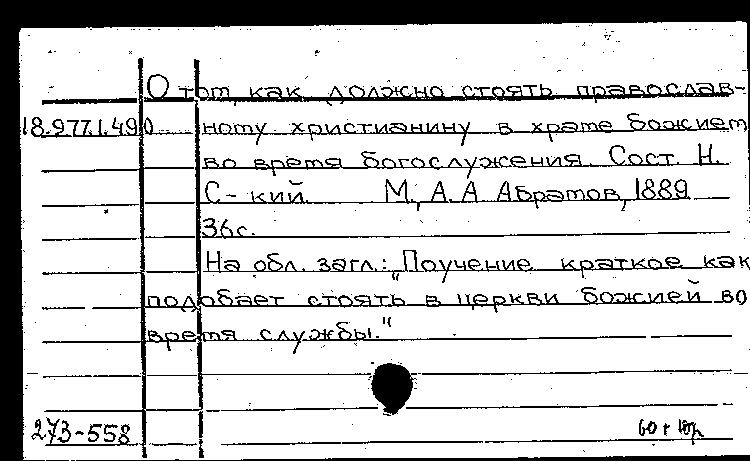 О том, как должно стоять православ-
18.977.1.490 ному христианину в храме божием
во время богослужения. Сост. Н.
С-кий. М., А.А. Абрамов, 1889
36с.
На обл. загл.: „Поучение краткое как
подобает стоять в церкви божией во
время службы."
273-558